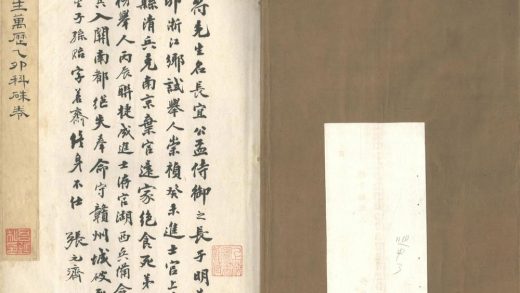 符先生名長宜宗孟侍御之長子明萬
卯浙江鄉試舉人崇禎癸未進士官上
縣清兵克南京棄官還家絕食死弟
榜舉人丙辰聯捷成進士洊官湖西兵備僉
入關南都繼失奉命守贛州城破
生子孫貽字羿齋終身不仕 張元濟
生萬歷乙卯科硃卷